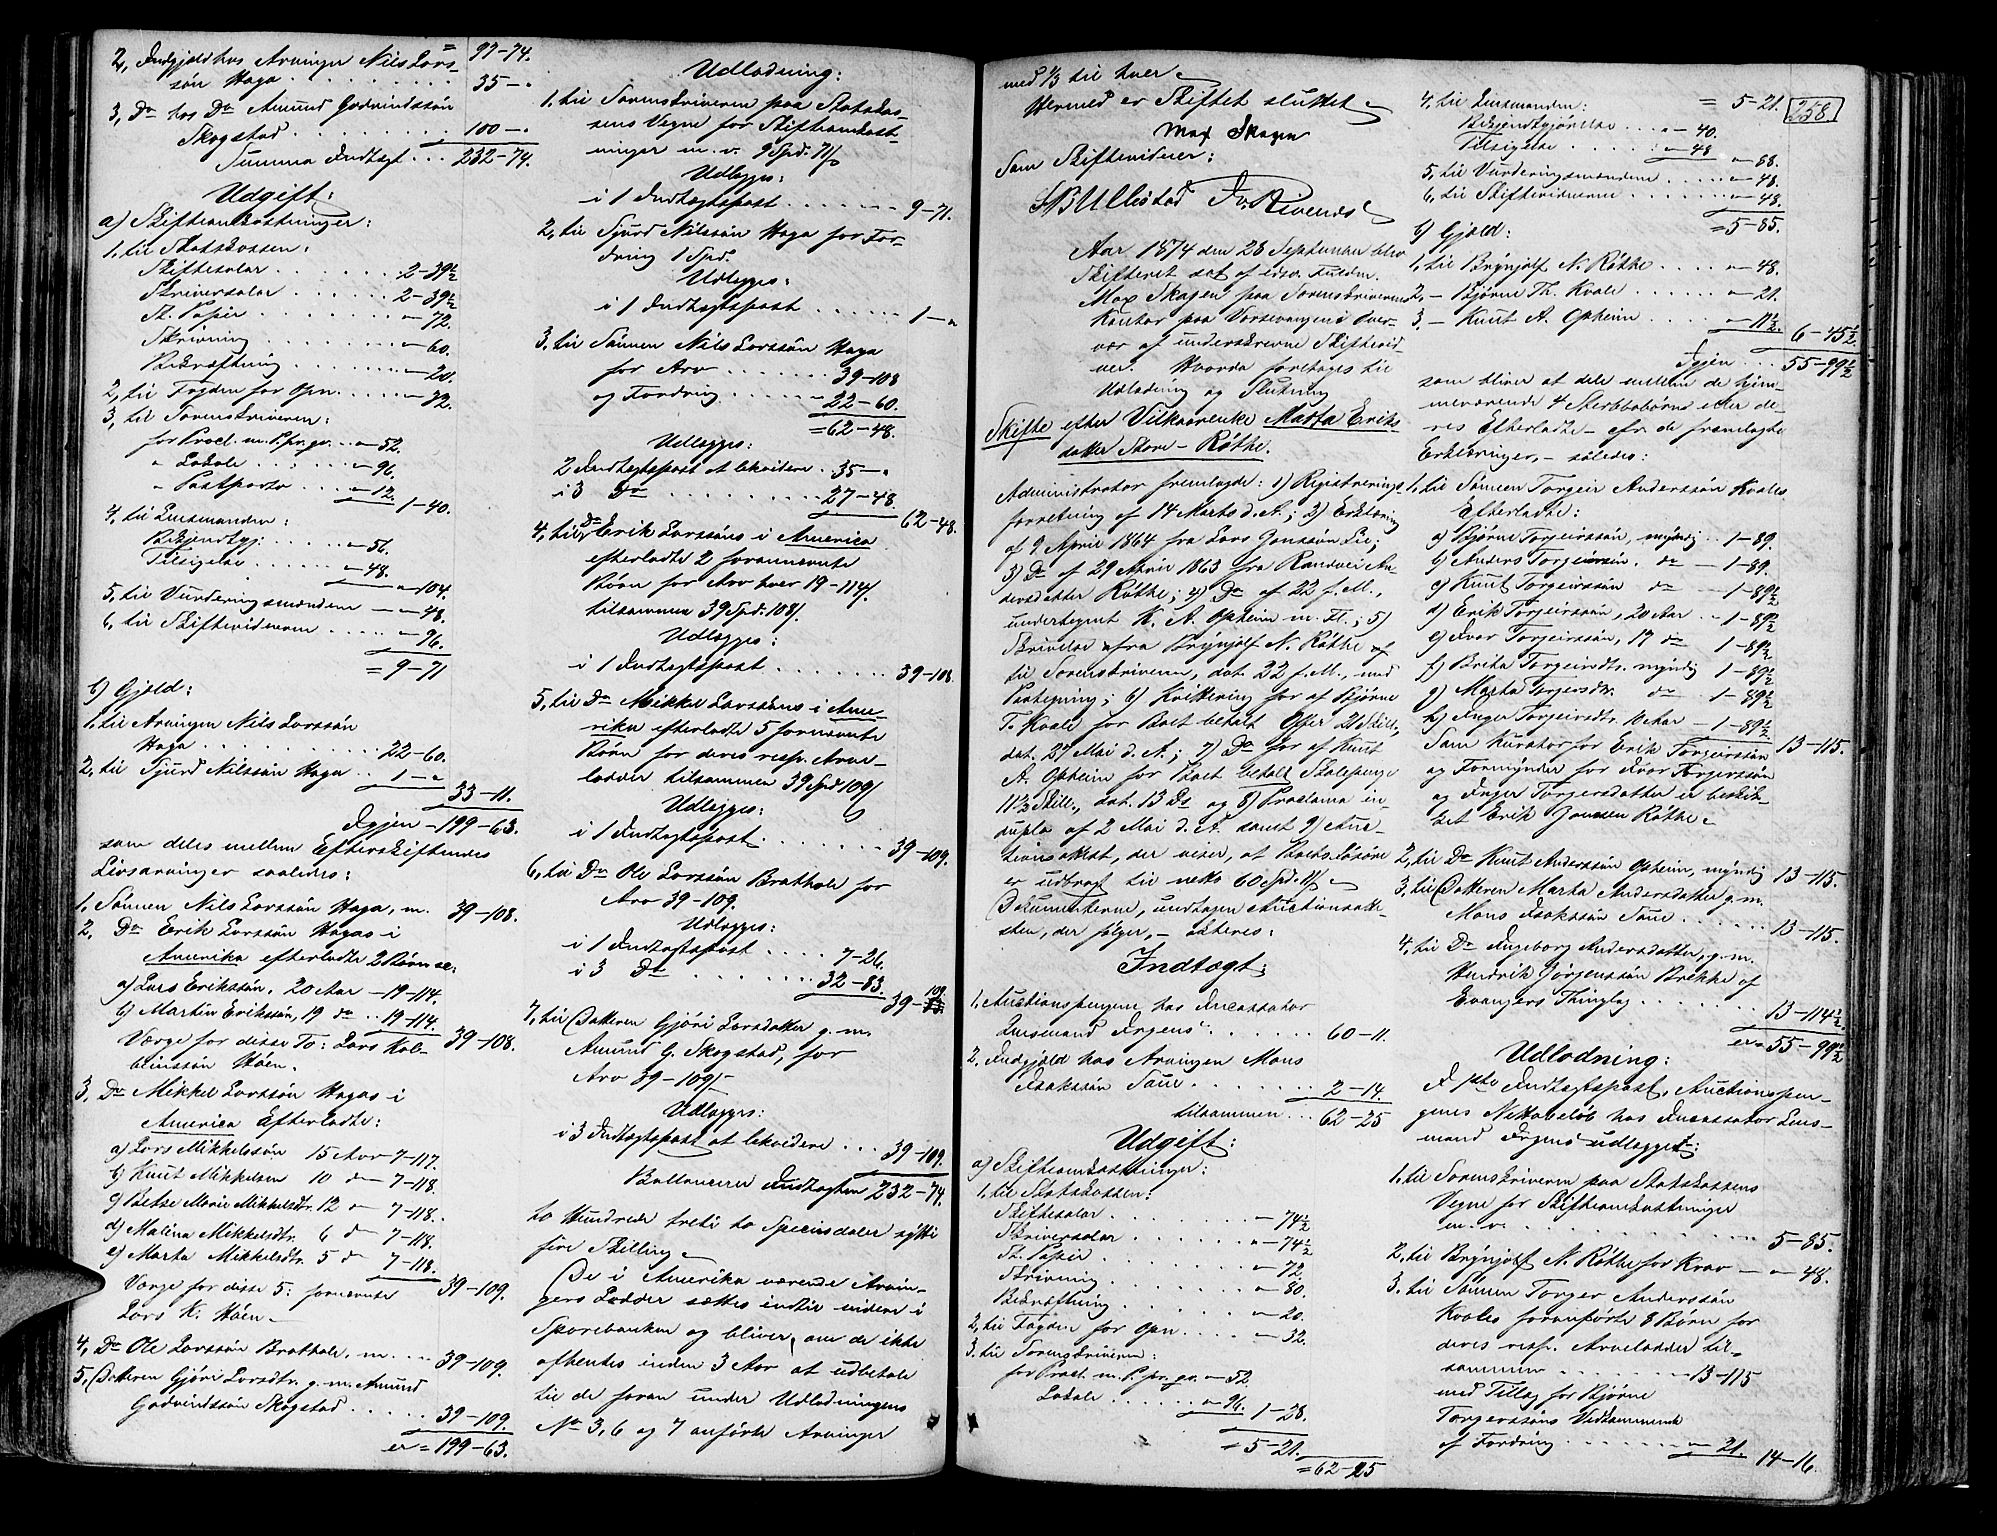 2, Indgjæld hos Arvinger Nils Lars- = 97-74.
søn Haga . . . . . . . . 35-"
3, Do hos Do Amund Godvindssøn
Skogstad . . . . . . . . 100-"
Summa Indtægt . . . 232-74.
Udgift:
a) Skifteomkostninger:
1, til Statskassen:
Skiftesalar . . . . . . . 2-39½
Skriversalar . . . . . . 2-39½
St. Papir . . . . . . . "-72.
Skrivning . . . . . . . "-60.
Bekræftning . . . . . . "-20.
2, til Fogden for Opn. . . . "-32.
3, til Sorenskriveren:
for Procl. m. P. pr. gv. . . "-52.
" Lokale . . . . . "-96.
" Postporto . . . "-12.
1-40.
4, til Lensmanden:
Bekjendtgj: . . . . "-56.
Tilsigelse . . . . . . "-48.
"-104.
5, til Vurderingsmændene — "-48.
6, til Skiftevidnerne . . . . . "-96.
= 9-71
b) Gjæld:
1, til Arvingen Nils Larssøn
Haga . . . . . . . . . . 22-60.
2, til Sjurd Nilssøn Haga . . 1-"
33-11.
Igjen - 199-63.
som deles mellem Efterskiftendes
Livsarvinger saaledes:
1. Sønnen Nils Larssøn Haga, m. 39-108.
2. Do Erik Larssøn Hagas i
Amerika efterladte 2 Børn se:
a) Lars Erikssøn, 20 Aar - 19-114.
b) Martin Erikssøn, 19 do . . 19-114.
Værge for disse To: Lars Kol- 39-108.
beinssøn Høen.
3, Do Mikkel Larssøn Hagas i
America Efterladte:
a) Lars Mikkelssøn 15 Aar 7-117.
b) Knut Mikkelsen 10 do - 7-118.
c) Betse Marie Mikkelsdtr. 12 do 7-118.
d) Malena Mikkelsdtr. 6 do 7-118.
e) Marta Mikkelsdtr. 5 do 7-118.
Værge for disse 5: fornevnte 39-109.
Lars K: Høen.
4, Do Ole Larssøn Brathole, m. . . . 39-109.
5, Datteren Gjøri Larsdtr. g. m. Amund
Godvindssøn Skogstad . . . . . 39-109.
er = 199-63.
Udlodning:
1. til Sorenskriveren paa Statskas-
sens Vegne for Skifteomkost-
ninger m. v. 9 Spd. 71 ß
Udlægges:
i 1 Indtægtspost . . . . . . . 9-71.
2, til Sjurd Nilssøn Haga for For-
dring 1 Spd.
Udlægges:
i 1 Indtægtspost . . . . . . 1-"
3. til Sønnen Nils Larssøn Haga
for Arv . . . . . . . 39-108
og Fordring . . . . . 22-60.
= 62-48.
Udlægges:
2 Indtægtspost at likvidere . 35-"
i 3 Do . . . . . . . . . 27-48.
62-48.
4, til Do Erik Larssøns i America
efterladte 2 forannevnte
Børn for Arv hver 19-114 ß.
tilsammen 39 Spd. 108 ß.
Udlægges:
i 1 Indtægtspost . . . . . . . 39-108.
5, til Do Mikkel Larssøns i Ame-
rika efterladte 5 fornevnte
Børn for deres resp. Arve-
lodder tilsammen 39 Spd 109 ß
Udlægges:
i 1 Indtægtspost . . . . . . . 39-109.
6, til Do Ole Larssøn Brathole for
Arv 39-109.
Udlægges:
i 1 Indtægtspost . . . . 7-26.
i 3 Do . . . . . . . 32-83.
39-109.
7, til Datteren Gjøri Larsdatter g. m.
Amund G. Skogstad, for
Arv 39-109 ß
Udlægges:
i 3 Indtægtspost at likvidere . . . 39-109.
Ballancerer Indtægten 232-74.
to Hundrede treti to Speciedaler sytti
fire Skilling
De i Amerika værende Arvin-
gers Lodder sættes indtil videre i
Sparebanken og bliver, om de ikke
afhentes inden 3 Aar at udbetale
til de foran under Udlodningens
No 3, 6 og 7 anførte Arvinger
med 1/3 til hver
Hermed er Skiftet sluttet
Max Skagen
Som Skiftevidner:
Aar 1874 den 28 September blev
Skifteret sat af edsv. Fuldm.
Max Skagen paa Sorenskriverens
Kontor paa Vossevangen i Over-
vær af underskrevne Skiftevid-
ner. Hvorda foretages til
Udlodning og Slutning
Skifte efter Vilkaarenke Marta Eriks-
datter Store-Røthe.
Administrator fremlagde: 1) Registrerings-
forretning af 14 Marts d. A.; 2) Erklæring
af 9 April 1864 fra Lars Gonssøn Lie;
3) Do af 29 April 1863 fra Randvei An-
dersdatter Røthe; 4) Do af 22 f. M.,
undertegnet K. A. Opheim m. Fl.; 5)
Skrivelse fra Brynjolf N. Røthe
til Sorenskriveren, dat. 22 f. M., med
Paategning; 6) Kvittering for af Bjørne
T. Kvale for Boet betalt Offer 21 Skill.,
dat. 27 Mai d. A.; 7) Do for af Knut
A. Opheim for Boet betalt Skolepenge
11½ Skill., dat. 13 Ds og 8) Proclama in-
duplo af 2 Mai d. A. samt 9) Auc-
tionsattest, der viser, at Boets Løsøre
er udbragt til netto 60 Spd. 11 ß
Dokumenterne, undtagen Auctionsatte-
sten, der følger, - akteres:
Indtægt:
1. Auctionspengene hos Incassator
Lensmand Irgens . . . . . . 60-11.
2. Indgjæld hos Arvingen Mons
Isakssøn Saue . . . . . . . 2-14
tilsammen . . 62-25
Udgift:
a) Skifteomkostninger:
1. til Statskassen:
Skiftesalar . . . . . . . "-74½
Skriversalar . . . . . . "-74½
St. Papir . . . . . . . "-72.
Skrivning . . . . . . . "-80.
Bekræftning . . . . . . "-20.
2, til Fogden for Opn. . . . "-32.
3. til Sorenskriveren:
for Procl. m. P. pr. gv. - 52.
Lokale . . . . . "-96.
1-28.
= 5-21.
= 62-25
258.
= 5-21.
4, til Lensmanden:
Bekjendtgjørelse . . . "-40.
Tilsigelse . . . . . . "-48
"-88.
5, til Vurderingsmændene . . . . "-48.
6, til Skiftevidnerne . . . . . . "-48.
= 5-85.
b) Gjæld:
1, til Brynjolf N. Røthe . . . . "-48.
2, - Bjørne Th. Kvale . . . . . "-21.
3, - Knut A. Opheim . . . . . "-11½.
6-45½.
Igjen . . 55-99½
som bliver at dele mellem de hjem-
meværende 4 Sterbbobørns eller de-
res Efterladte - cfr. de fremlagte
Erklæringer, - saaledes:
1, til Sønnen Torgeir Anderssøn Kvales
Efterladte:
a) Bjørne Torgeirssøn, myndig . . 1-89.
b) Anders Torgeirssøn. do — 1-89.
c) Knut Torgeirssøn do . . 1-89½
d) Erik Torgeirssøn, 20 Aar . . 1-89½
e) Ivar Torgeirssøn, 17 do 1-89½
f) Brita Torgeirsdtr. myndig 1-89½
g) Marta Torgersdtr. do - 1-89½
h) Inger Torgeirsdtr. 10 Aar — 1-89½
13-115.
Som Kurator for Erik Torgeirssøn
og Formynder for Ivar Torgerssøn
og Inger Torgersdatter er beskik-
ket Erik Jonssen Røthe.
2, til Do Knut Anderssøn Opheim, myndig 13-115.
3, til Datteren Marta Andersdatter g. m.
Mons Isakssøn Saue . . . . . . 13-115.
4, til Do Ingeborg Andersdatter, g. m.
Hendrik Jørgenssøn Brekke af
Evangers Thinglag . . . . . . . 13-114½
er = 55-99½
Udlodning:
I 1ste Indtægtspost, Auctionspen-
genes Nettobeløb hos Incassator Lens-
mand Irgens udlægges:
1, til Sorenskriveren paa Statskassens
Vegne for Skifteomkostninger
m. v. . . . . . . . . 5-85.
2, til Brynjolf N. Røthe for Krav — "-48.
3. til Sønnen Torger Anderssøn
Kvales foranførte 8 Børn for
deres resp. Arvelodder til-
sammen . . . . . . . 13-115
med Tillæg for Bjørne
Torgerssøns Vedkommende
af Fordring . . . . . . "-21.
14-16.